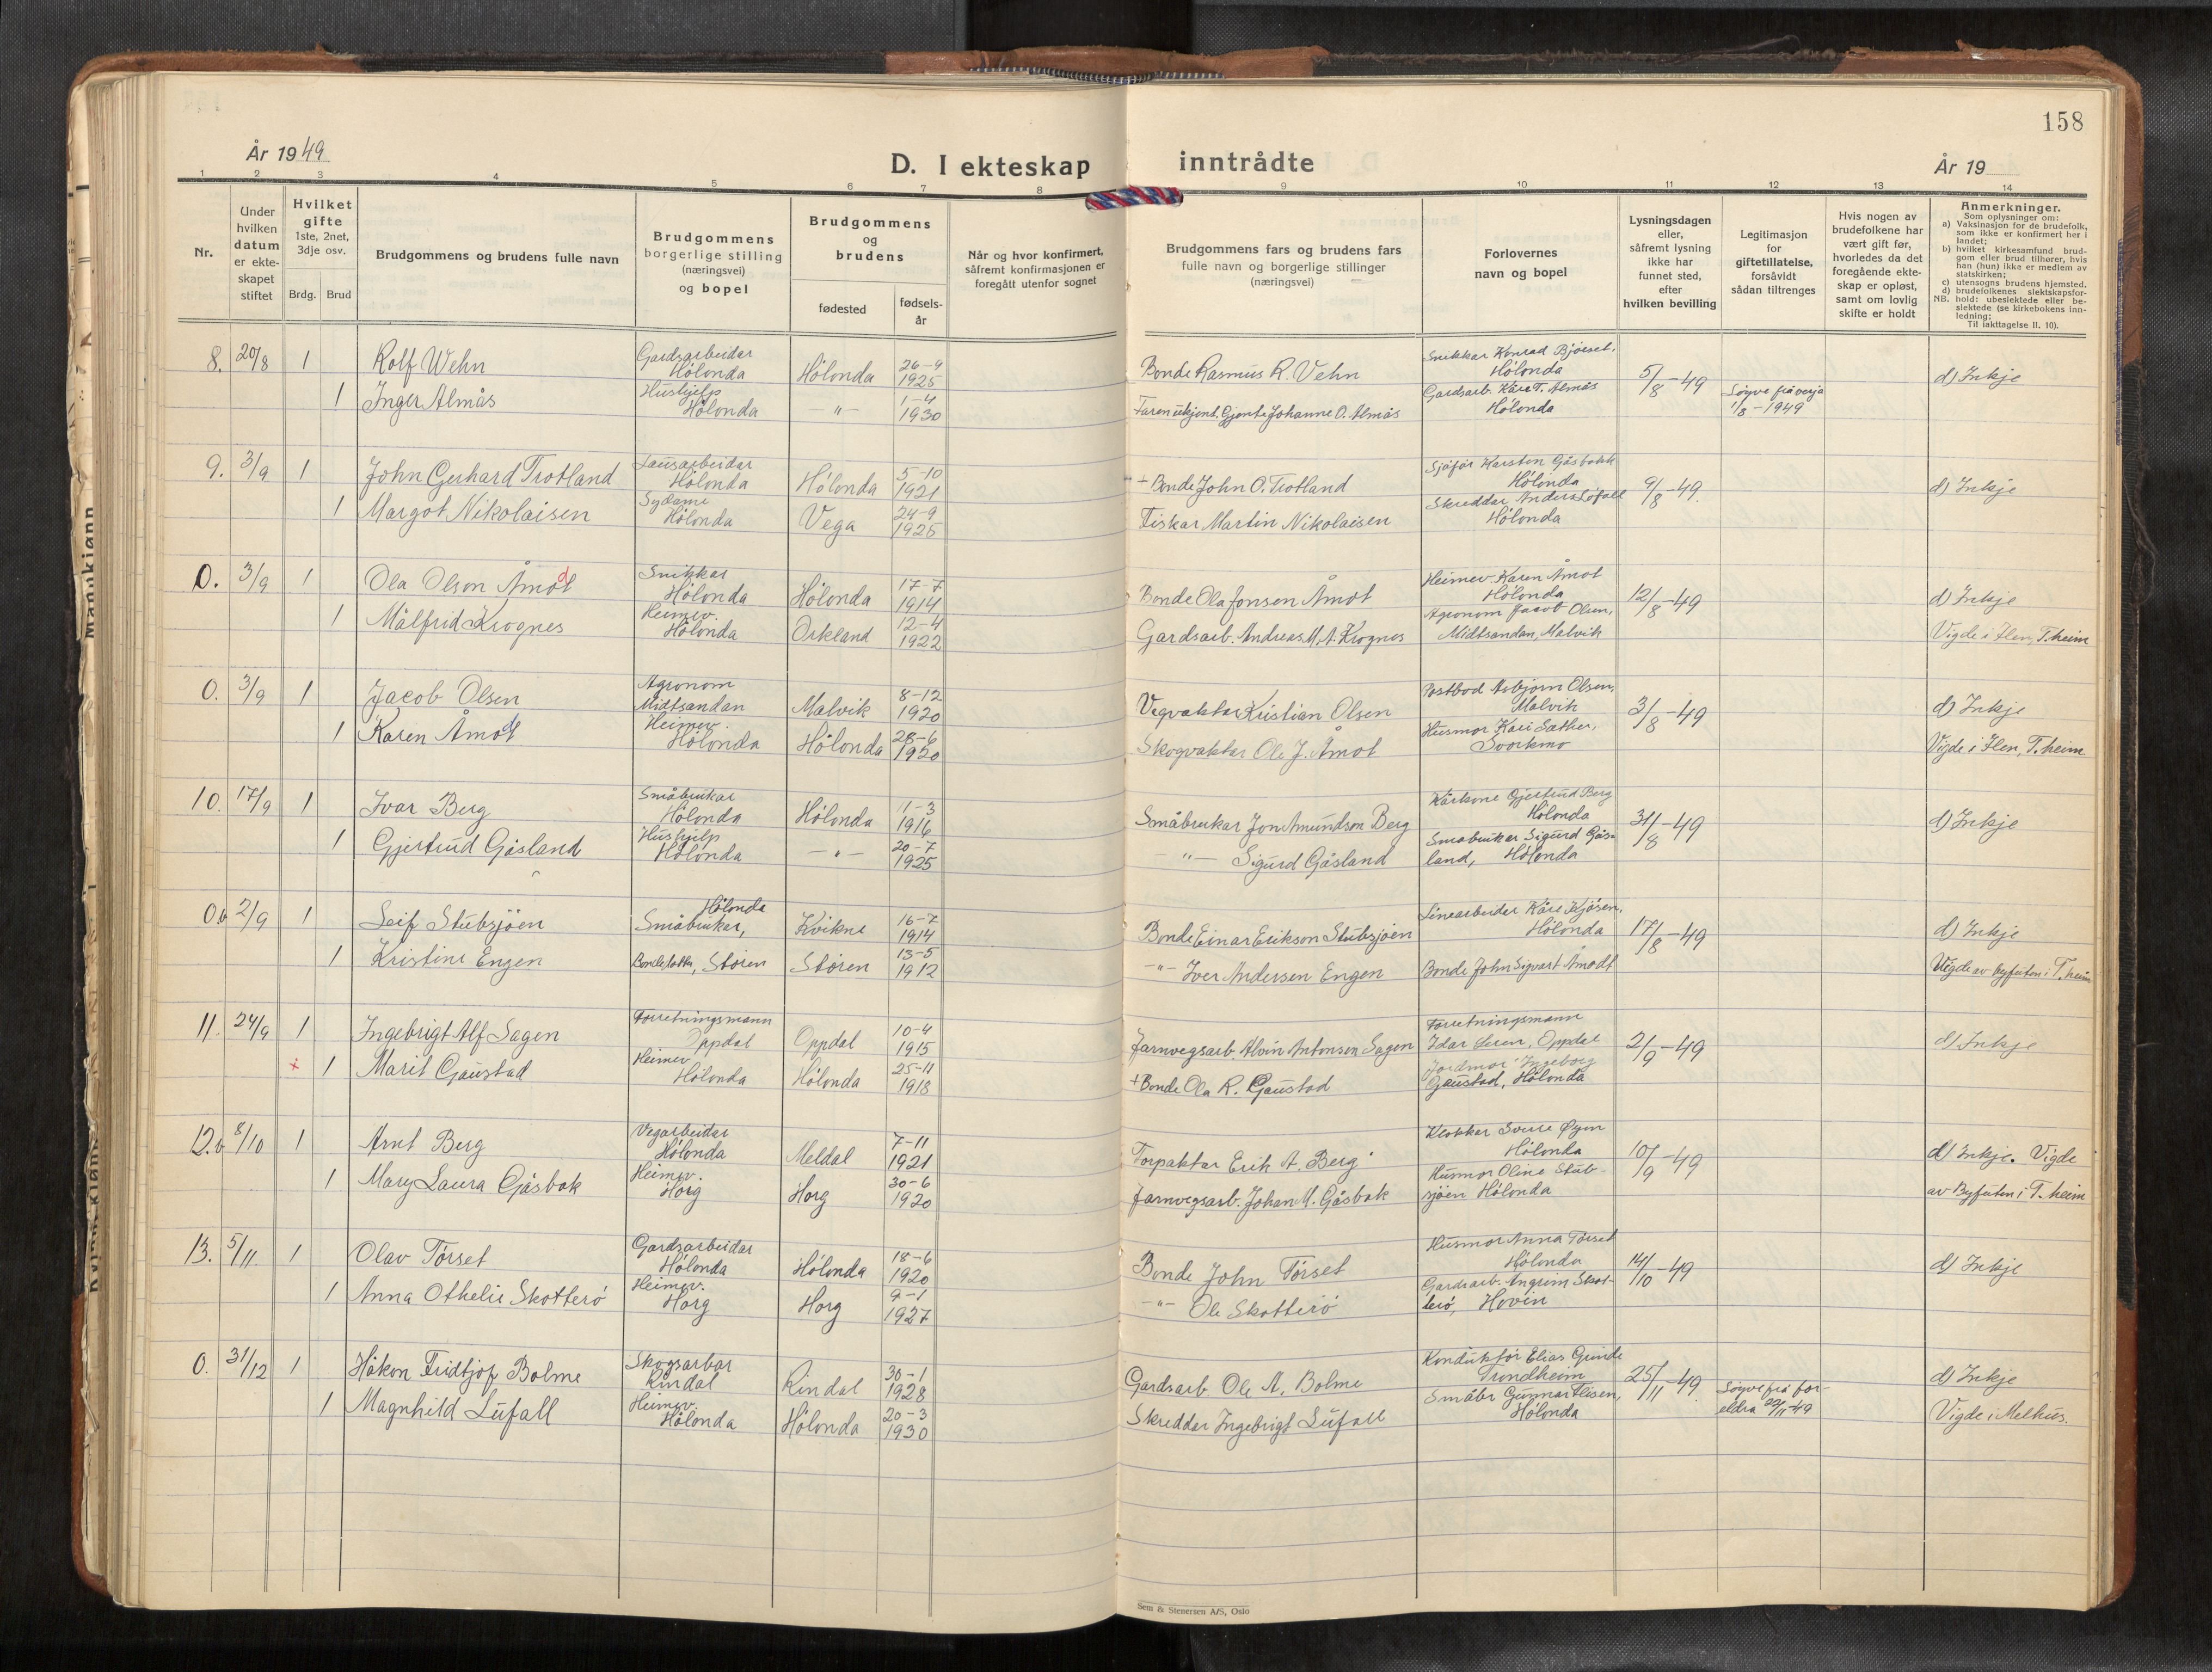 158
År 1949
D. I ekteskap inntrådte
År 19
1 2 3 4 5 6 7 8 9 10 11 12 13 14
Nr.
Under hvilken datum er ekteskapet stiftet
Hvilket gifte 1ste, 2net, 3dje osv.
Brdg. Brud
Brudgommens og brudens fulle navn
Brudgommens borgerlige stilling (næringsvei) og bopel
Brudgommens og brudens
fødested
fødsels-år
Når og hvor konfirmert, såfremt konfirmasjonen er foregått utenfor sognet
Brudgommens fars og brudens fars fulle navn og borgerlige stillinger (næringsvei)
Forlovernes navn og bopel
Lysningsdagen eller, såfremt lysning ikke har funnet sted, efter hvilken bevilling
Legitimasjon for giftetillatelse, forsåvidt sådan tiltrenges
Hvis nogen av brudefolkene har vært gift før, hvorledes da det foregående ekteskap er opløst, samt om lovlig skifte er holdt
Anmerkninger.
Som oplysninger om:
a) Vaksinasjon for de brudefolk, som ikke er konfirmert her i landet;
b) hvilket kirkesamfund brudgom eller brud tilhører, hvis han (hun) ikke er medlem av statskirken;
c) utensogns brudens hjemsted.
d) brudefolkenes slektskapsfor-
NB. hold: ubeslektede eller beslektede (se kirkebokens innledning;
Til iakttagelse II. 10).
8. 20/8 1 Rolf Wehn Gardsarbeidar Hølonda Hølonda 26-9 1925 Bonde Rasmus R. Vehn Snikkar Konrad Bjørset, Hølonda 5/8-49 d) Inkje
1 Inger Almås Hushjelp Hølonda -"- 1-4 1930 Faren ukjent. Gjente Johanne O. Almås Gardsarb. Kåre T. Almås Hølonda Løyve frå verja 1/8-1949
9. 3/9 1 John Gerhard Trotland Lausarbeidar Hølonda Hølonda 5-10 1921 + Bonde John O. Trotland Sjåfør Karsten Gåsbakk Hølonda 9/8-49. d) Inkje
1 Margot Nikolaisen Sydame Hølonda Vega 24-9 1925 Fiskar Martin Nikolaisen Skreddar Anders Løfall Hølonda
0. 3/9 1 Ola Olson Åmot d Snikkar Hølonda Hølonda 17-7 1914 Bonde Ola Jonsen Åmot Heimev. Karen Åmot Hølonda 12/8-49 d) Inkje
1 Målfrid Krognes Heimev. Hølonda Orkland 12-4 1922 Gardsarb. Andreas M. A. Krognes Agronom Jacob Olsen, Midtsandan, Malvik Vigde i Ilen, T.heim
0. 3/9 1 Jacob Olsen Agronom Midtsandan Malvik 8-12 1920 Vegvaktar Kristian Olsen Postbod Asbjørn Olsen, Malvik 3/8-49 d) Inkje
1 Karen Åmot Heimev. Hølonda Hølonda 28-6 1920 Skogvaktar Ole J. Åmot Husmor Kari Sæther, Svorkmo Vigde i Ilen, T.heim
10. 17/9 1 Ivar Berg Småbrukar Hølonda Hølonda 11-3 1916 Småbrukar Jon Amundson Berg Kårkone Gjertrud Berg Hølonda 31/8-49 d) Inkje
1 Gjertrud Gåsland Hushjelp Hølonda -"- 20-7 1925 -"- Sigurd Gåsland Småbrukar Sigurd Gåsland, Hølonda
0.b 2/9 1 Leif Stubsjøen Småbrukar, Hølonda Kvikne 16-7 1914 Bonde Einar Erikson Stubsjøen Linearbeider Kåre Kjøsen, Hølonda 17/8-49 d) Inkje
1 Kristine Engen Bondedotter, Støren Støren 13-5 1912 -"- Iver Andersen Engen Bonde John Sigvart Åmodt Vigde av byfuten i T.heim
11. 24/9 1 Ingebrigt Alf Sagen Forretningsmann Oppdal Oppdal 10-4 1915 Jarnvegsarb. Alvin Antonsen Sagen Forretningsmann Idar Loren, Oppdal 2/9-49 d) Inkje
+ 1 Marit Gaustad Heimev Hølonda Hølonda 25-11 1918 + Bonde Ola R. Gaustad Jordmor Ingeborg Gaustad, Hølonda
12.b 8/10 1 Arnt Berg Vegarbeidar Hølonda Meldal 7-11 1921 Torpaktar Erik A. Berg Klokkar Sverre Øyen Hølonda 10/9-49 d) Inkje. Vigde
1 Mary Laura Gåsbak Heimev. Horg Horg 30-6 1920 Jarnvegsarb. Johan M. Gåsbak Husmor Oline Stubsjøen Hølonda av Byfuten i T.heim
13. 5/11 1 Olav Tørset Gardsarbeidar Hølonda Hølonda 18-6 1920 Bonde John Tørset Husmor Anna Tørset Hølonda 14/10-49 d) Inkje
1 Anna Othelie Skotterö Heimev. Horg Horg 9-1 1927 -"- Ole Skotterö Gardsarb. Angrim Skotterö, Hovin
0. 31/12 1 Håkon Fridtjof Bolme Skogsarbar Rindal Rindal 30-1 1928 Gardsarb Ole A. Bolme Konduktør Elias Grinde Trondheim 25/11-49 d) Inkje
1 Magnhild Lufall Heimev. Hølonda Hølonda 20-3 1930 Skreddar Ingebrigt Lufall Småbr Gunnar Flisen, Hølonda Løyve frå foreldra 22/11-49 Vigde i Melhus.
Sem & Stenersen A/S, Oslo